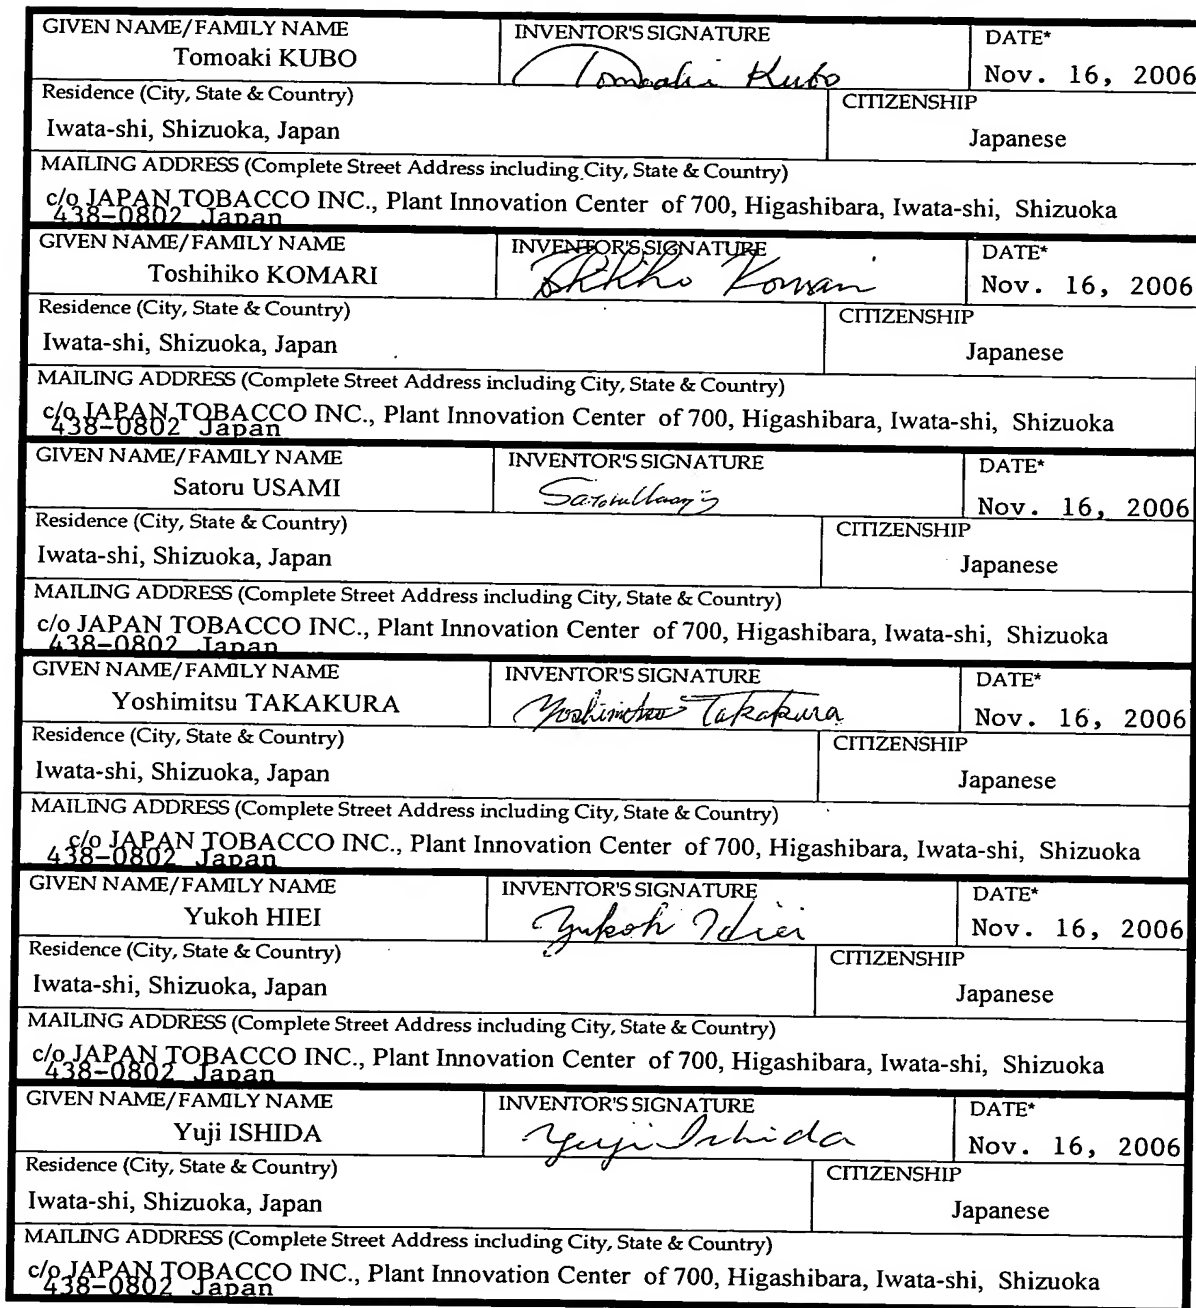 GIVEN NAME/FAMILY NAME INVENTOR'S SIGNATURE DATE*
Tomoaki KUBO Tomoaki Kubo Nov. 16, 2006
Residence (City, State & Country) CITIZENSHIP
Iwata-shi, Shizuoka, Japan Japanese
MAILING ADDRESS (Complete Street Address including City, State & Country)
c/o JAPAN TOBACCO INC., Plant Innovation Center of 700, Higashibara, Iwata-shi, Shizuoka
438-0802 Japan
GIVEN NAME/FAMILY NAME INVENTOR'S SIGNATURE DATE*
Toshihiko KOMARI Komari Nov. 16, 2006
Residence (City, State & Country) CITIZENSHIP
Iwata-shi, Shizuoka, Japan Japanese
MAILING ADDRESS (Complete Street Address including City, State & Country)
c/o JAPAN TOBACCO INC., Plant Innovation Center of 700, Higashibara, Iwata-shi, Shizuoka
438-0802 Japan
GIVEN NAME/FAMILY NAME INVENTOR'S SIGNATURE DATE*
Satoru USAMI Satoru Usami Nov. 16, 2006
Residence (City, State & Country) CITIZENSHIP
Iwata-shi, Shizuoka, Japan Japanese
MAILING ADDRESS (Complete Street Address including City, State & Country)
c/o JAPAN TOBACCO INC., Plant Innovation Center of 700, Higashibara, Iwata-shi, Shizuoka
438-0802 Japan
GIVEN NAME/FAMILY NAME INVENTOR'S SIGNATURE DATE*
Yoshimitsu TAKAKURA Yoshimitsu Takakura Nov. 16, 2006
Residence (City, State & Country) CITIZENSHIP
Iwata-shi, Shizuoka, Japan Japanese
MAILING ADDRESS (Complete Street Address including City, State & Country)
c/o JAPAN TOBACCO INC., Plant Innovation Center of 700, Higashibara, Iwata-shi, Shizuoka
438-0802 Japan
GIVEN NAME/FAMILY NAME INVENTOR'S SIGNATURE DATE*
Yukoh HIEI Yukoh Hiei Nov. 16, 2006
Residence (City, State & Country) CITIZENSHIP
Iwata-shi, Shizuoka, Japan Japanese
MAILING ADDRESS (Complete Street Address including City, State & Country)
c/o JAPAN TOBACCO INC., Plant Innovation Center of 700, Higashibara, Iwata-shi, Shizuoka
438-0802 Japan
GIVEN NAME/FAMILY NAME INVENTOR'S SIGNATURE DATE*
Yuji ISHIDA Yuji Ishida Nov. 16, 2006
Residence (City, State & Country) CITIZENSHIP
Iwata-shi, Shizuoka, Japan Japanese
MAILING ADDRESS (Complete Street Address including City, State & Country)
c/o JAPAN TOBACCO INC., Plant Innovation Center of 700, Higashibara, Iwata-shi, Shizuoka
438-0802 Japan